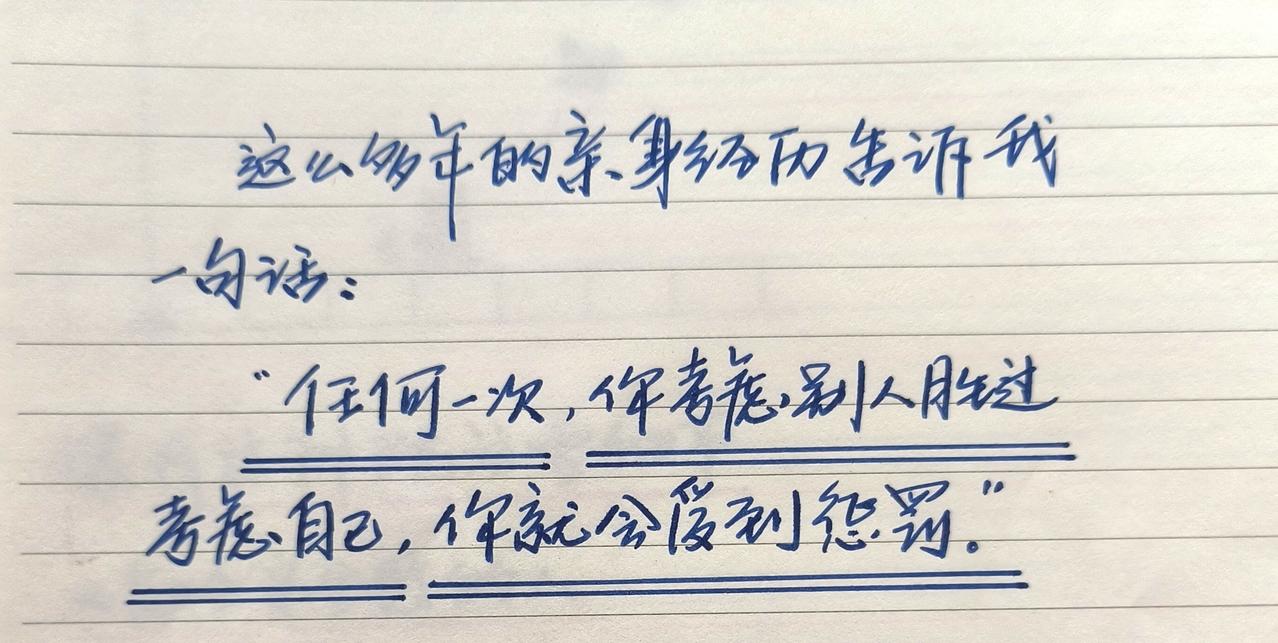 这么多年的亲身经历告诉我
一句话：
“任何一次，你考虑别人胜过
考虑自己，你就会受到惩罚。”